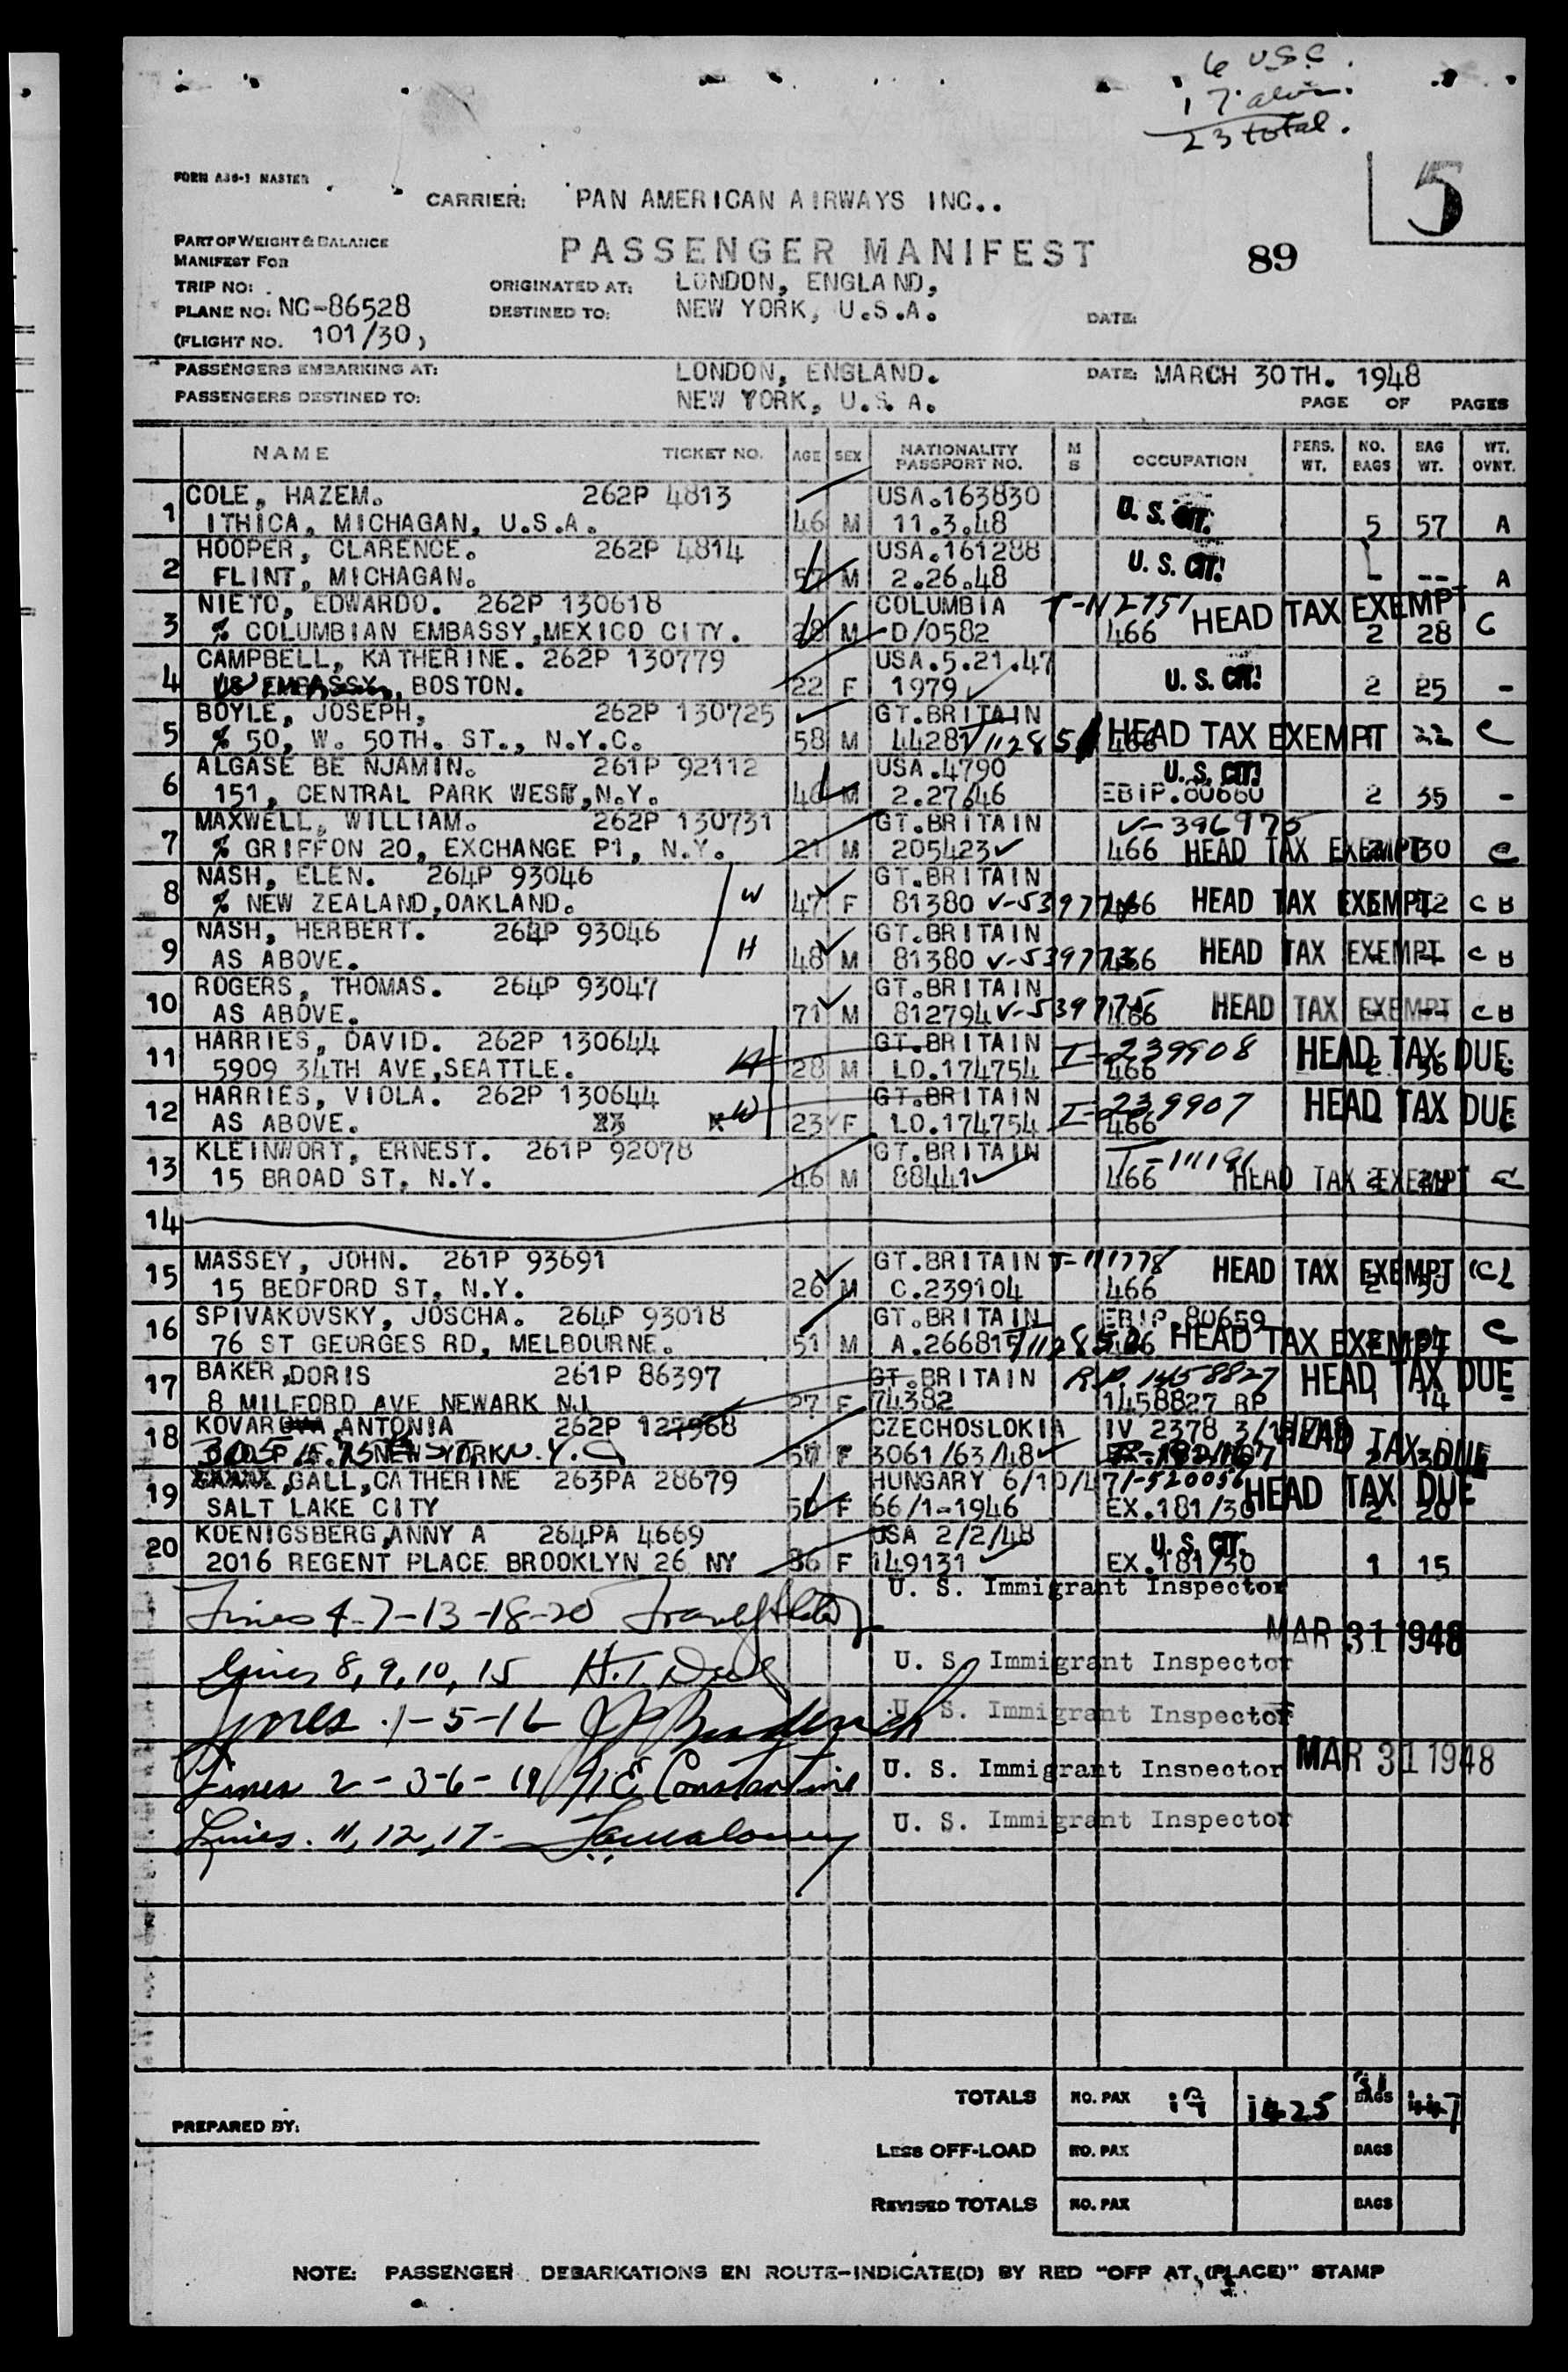 6 U.S.C.
17 alien.
23 total.
FORM A36-1 MASTER
5
CARRIER: PAN AMERICAN AIRWAYS INC..
PART OF WEIGHT & BALANCE
MANIFEST FOR
PASSENGER MANIFEST
89
TRIP NO:
ORIGINATED AT: LONDON, ENGLAND,
PLANE NO: NC-86528
DESTINED TO: NEW YORK, U.S.A.
DATE:
(FLIGHT NO. 101/30,)
PASSENGERS EMBARKING AT: LONDON, ENGLAND. DATE: MARCH 30TH. 1948
PASSENGERS DESTINED TO: NEW YORK, U.S.A. PAGE OF PAGES
NAME TICKET NO. AGE SEX NATIONALITY PASSPORT NO. M S OCCUPATION PERS. WT. NO. BAGS BAG WT. WT. OVNT.
1 COLE, HAZEM. 262P 4813 USA.163830 U. S. CIT.
ITHICA, MICHAGAN, U.S.A. 46 M 11.3.48 5 57 A
2 HOOPER, CLARENCE. 262P 4814 USA.161288 U. S. CIT!
FLINT, MICHAGAN. 57 M 2.26.48 - -- A
3 NIETO, EDWARDO. 262P 130618 COLUMBIA T-N2751 HEAD TAX EXEMPT
% COLUMBIAN EMBASSY,MEXICO CITY. 28 M D/0582 466 2 28 C
4 CAMPBELL, KATHERINE. 262P 130779 USA.5.21.47 U. S. CIT!
US EMBASSY, BOSTON. 22 F 1979 2 25 -
5 BOYLE, JOSEPH, 262P 130725 GT.BRITAIN HEAD TAX EXEMPT
% 50, W. 50TH. ST., N.Y.C. 58 M 44281 466 22 C
6 ALGASE BE NJAMIN. 261P 92112 USA.4790 U. S. CIT!
151, CENTRAL PARK WEST,N.Y. 40 M 2.27.46 EBIP.80660 2 35 -
7 MAXWELL, WILLIAM. 262P 130731 GT.BRITAIN V-396975
% GRIFFON 20, EXCHANGE P1, N.Y. 21 M 205423 466 HEAD TAX EXEMPT 30 C
8 NASH, ELEN. 264P 93046 W GT.BRITAIN
% NEW ZEALAND,OAKLAND. 47 F 81380 V-539774 466 HEAD TAX EXEMPT C B
9 NASH, HERBERT. 264P 93046 H GT.BRITAIN
AS ABOVE. 48 M 81380 V-539773 466 HEAD TAX EXEMPT C B
10 ROGERS, THOMAS. 264P 93047 GT.BRITAIN
AS ABOVE. 71 M 812794 V-539775 466 HEAD TAX EXEMPT C B
11 HARRIES, DAVID. 262P 130644 H GT.BRITAIN I-239908 HEAD TAX DUE
5909 34TH AVE,SEATTLE. 28 M LO.174754 466
12 HARRIES, VIOLA. 262P 130644 W GT.BRITAIN I-239907 HEAD TAX DUE
AS ABOVE. 23 F LO.174754 466
13 KLEINWORT, ERNEST. 261P 92078 GT.BRITAIN T-111191
15 BROAD ST, N.Y. 46 M 88441 466 HEAD TAX EXEMPT C
14
15 MASSEY, JOHN. 261P 93691 GT.BRITAIN T-111778 HEAD TAX EXEMPT
15 BEDFORD ST, N.Y. 26 M C.239104 466
16 SPIVAKOVSKY, JOSCHA. 264P 93018 GT.BRITAIN EBIP.80659
76 ST GEORGES RD, MELBOURNE. 51 M A.26681 466 HEAD TAX EXEMPT C
17 BAKER,DORIS 261P 86397 GT.BRITAIN R.P. 1458827 HEAD TAX DUE
8 MILFORD AVE NEWARK NJ 27 F 74382 1458827 RP 1 14
18 KOVAR ANTONIA 262P 127968 CZECHOSLOKIA IV 2378 HEAD TAX DUE
N.Y.C 57 F 3061/63/48
19 GALL,CATHERINE 263PA 28679 HUNGARY 6/10/47 HEAD TAX DUE
SALT LAKE CITY 50 F 66/1-1946 EX.181/30 2 20
20 KOENIGSBERG,ANNY A 264PA 4669 USA 2/2/48 U. S. CIT.
2016 REGENT PLACE BROOKLYN 26 NY 36 F 149131 EX.181/30 1 15
Lines 4-7-13-18-20 U. S. Immigrant Inspector
MAR 31 1948
Lines 8, 9, 10, 15 U. S. Immigrant Inspector
Lines 1-5-16 U. S. Immigrant Inspector
Lines 2-3-6-19 N E Constantine U. S. Immigrant Inspector MAR 31 1948
Lines. 11, 12, 17- U. S. Immigrant Inspector
TOTALS NO. PAX 19 1425 BAGS 447
PREPARED BY:
LESS OFF-LOAD NO. PAX BAGS
REVISED TOTALS NO. PAX BAGS
NOTE: PASSENGER DEBARKATIONS EN ROUTE-INDICATE(D) BY RED "OFF AT (PLACE)" STAMP